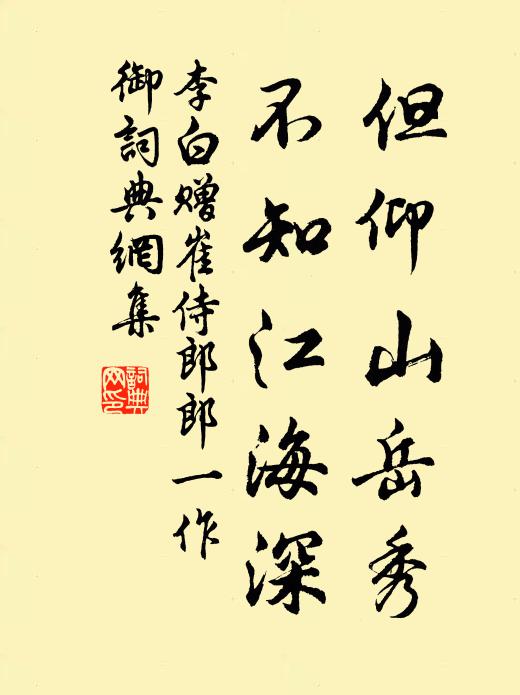 但仰山岳秀
不知江海深
李白赠崔侍郎郎一作
御詞典網集
詞典网印